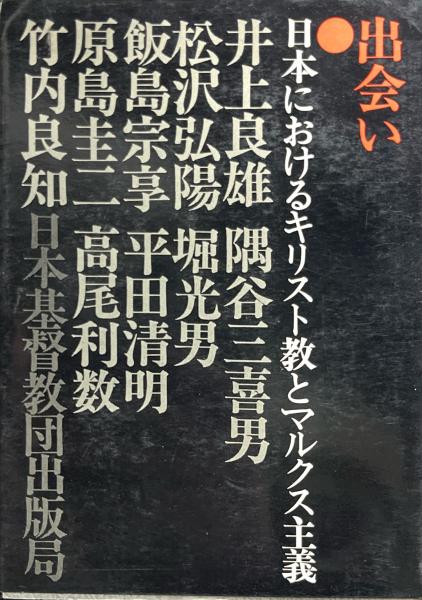 出会い
●日本におけるキリスト教とマルクス主義
井上良雄 隅谷三喜男
松沢弘陽 堀光男
飯島宗享 平田清明
原島圭二 高尾利数
竹内良知 日本基督教団出版局